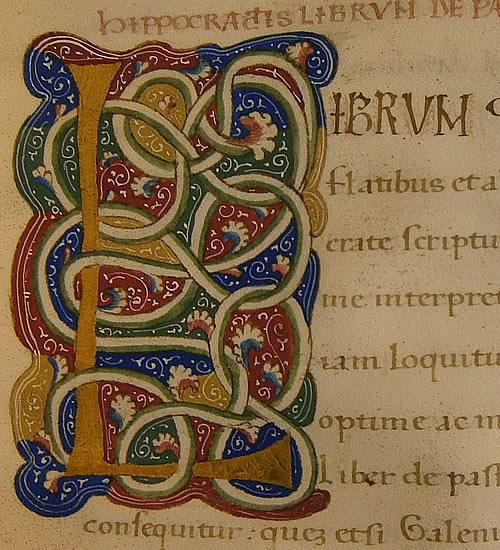 HIPPOCRATIS LIBRVM DE PA
LIBRVM
flatibus et a
crate scriptu
me interpret
iam loquitu
optime ac in
Liber de pass
consequitur: quez etsi Galenu